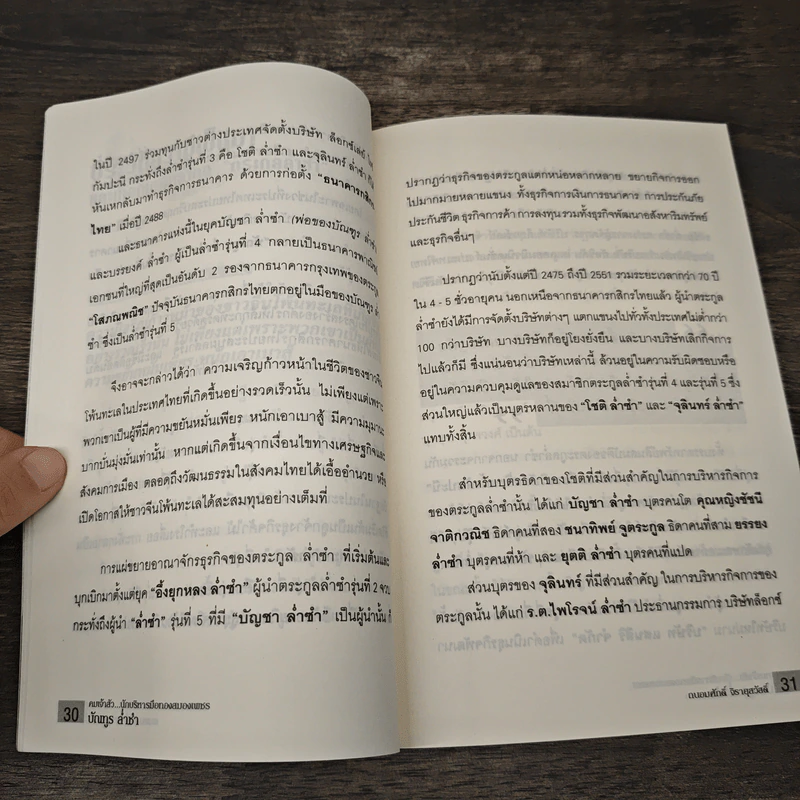 ในปี 2497 ร่วมทุนกับชาวต่างประเทศจัดตั้งบริษัท ล็อกซเล่ย์
กัมปะนี กระทั่งถึงล่ำซำรุ่นที่ 3 คือ โชติ ล่ำซำ และจุลินทร์ ล่ำซำ
หันเหกลับมาทำธุรกิจการธนาคาร ด้วยการก่อตั้ง "ธนาคารกสิกร
ไทย" เมื่อปี 2488
และธนาคารแห่งนี้ในยุคบัญชา ล่ำซำ (พ่อของบัณฑูร ล่ำซำ
และบรรยงค์ ล่ำซำ ผู้เป็นล่ำซำรุ่นที่ 4 กลายเป็นธนาคารพาณิชย์
เอกชนที่ใหญ่ที่สุดเป็นอันดับ 2 รองจากธนาคารกรุงเทพของตระกูล
"โสภณพณิช" ปัจจุบันธนาคารกสิกรไทยตกอยู่ในมือของบัณฑูร ล่ำ
ซำ ซึ่งเป็นล่ำซำรุ่นที่ 5
จึงอาจจะกล่าวได้ว่า ความเจริญก้าวหน้าในชีวิตของชาวจีน
โพ้นทะเลในประเทศไทยที่เกิดขึ้นอย่างรวดเร็วนั้น ไม่เพียงแต่เพราะ
พวกเขาเป็นผู้ที่มีความขยันหมั่นเพียร หนักเอาเบาสู้ มีความมุมานะ
บากบั่นมุ่งมั่นเท่านั้น หากแต่เกิดขึ้นจากเงื่อนไขทางเศรษฐกิจและ
สังคมการเมือง ตลอดถึงวัฒนธรรมในสังคมไทยได้เอื้ออำนวย หรือ
เปิดโอกาสให้ชาวจีนโพ้นทะเลได้สะสมทุนอย่างเต็มที่
การแผ่ขยายอาณาจักรธุรกิจของตระกูล ล่ำซำ ที่เริ่มต้นและ
บุกเบิกมาตั้งแต่ยุค "อึ้งยุกหลง ล่ำซำ" ผู้นำตระกูลล่ำซำรุ่นที่ 2 จวบ
กระทั่งถึงผู้นำ "ล่ำซำ" รุ่นที่ 5 ที่มี "บัญชา ล่ำซำ" เป็นผู้นำนั้น
30 คมเจ้าสัว...นักบริหารมือทองสมองเพชร
บัณฑูร ล่ำซำ
ปรากฏว่าธุรกิจของตระกูลแตกหน่อหลากหลาย ขยายกิจการออก
ไปมากมายหลายแขนง ทั้งธุรกิจการเงินการธนาคาร การประกันภัย
ประกันชีวิต ธุรกิจการค้า การลงทุน รวมทั้งธุรกิจพัฒนาอสังหาริมทรัพย์
และธุรกิจอื่นๆ
ปรากฏว่านับตั้งแต่ปี 2475 ถึงปี 2551 รวมระยะเวลากว่า 70 ปี
ใน 4 - 5 ชั่วอายุคน นอกเหนือจากธนาคารกสิกรไทยแล้ว ผู้นำตระกูล
ล่ำซำยังได้มีการจัดตั้งบริษัทต่างๆ แตกแขนงไปทั่วทั้งประเทศไม่ต่ำกว่า
100 กว่าบริษัท บางบริษัทก็อยู่ยงยั่งยืน และบางบริษัทเลิกกิจการ
ไปแล้วก็มี ซึ่งแน่นอนว่าบริษัทเหล่านี้ ล้วนอยู่ในความรับผิดชอบหรือ
อยู่ในความควบคุมดูแลของสมาชิกตระกูลล่ำซำรุ่นที่ 4 และรุ่นที่ 5 ซึ่ง
ส่วนใหญ่แล้วเป็นบุตรหลานของ "โชติ ล่ำซำ" และ "จุลินทร์ ล่ำซำ"
แทบทั้งสิ้น
สำหรับบุตรธิดาของโชติที่มีส่วนสำคัญในการบริหารกิจการ
ของตระกูลล่ำซำนั้น ได้แก่ บัญชา ล่ำซำ บุตรคนโต คุณหญิงชัชนี
จาติกวณิช ธิดาคนที่สอง ชนาทิพย์ จูตระกูล ธิดาคนที่สาม ธรรยง
ล่ำซำ บุตรคนที่ห้า และ ยุตติ ล่ำซำ บุตรคนที่แปด
ส่วนบุตรของ จุลินทร์ ที่มีส่วนสำคัญ ในการบริหารกิจการของ
ตระกูลนั้น ได้แก่ ร.ต.ไพโรจน์ ล่ำซำ ประธานกรรมการ บริษัทล็อกซ์
ถนอมศักดิ์ จิรายุสวัสดิ์ 31